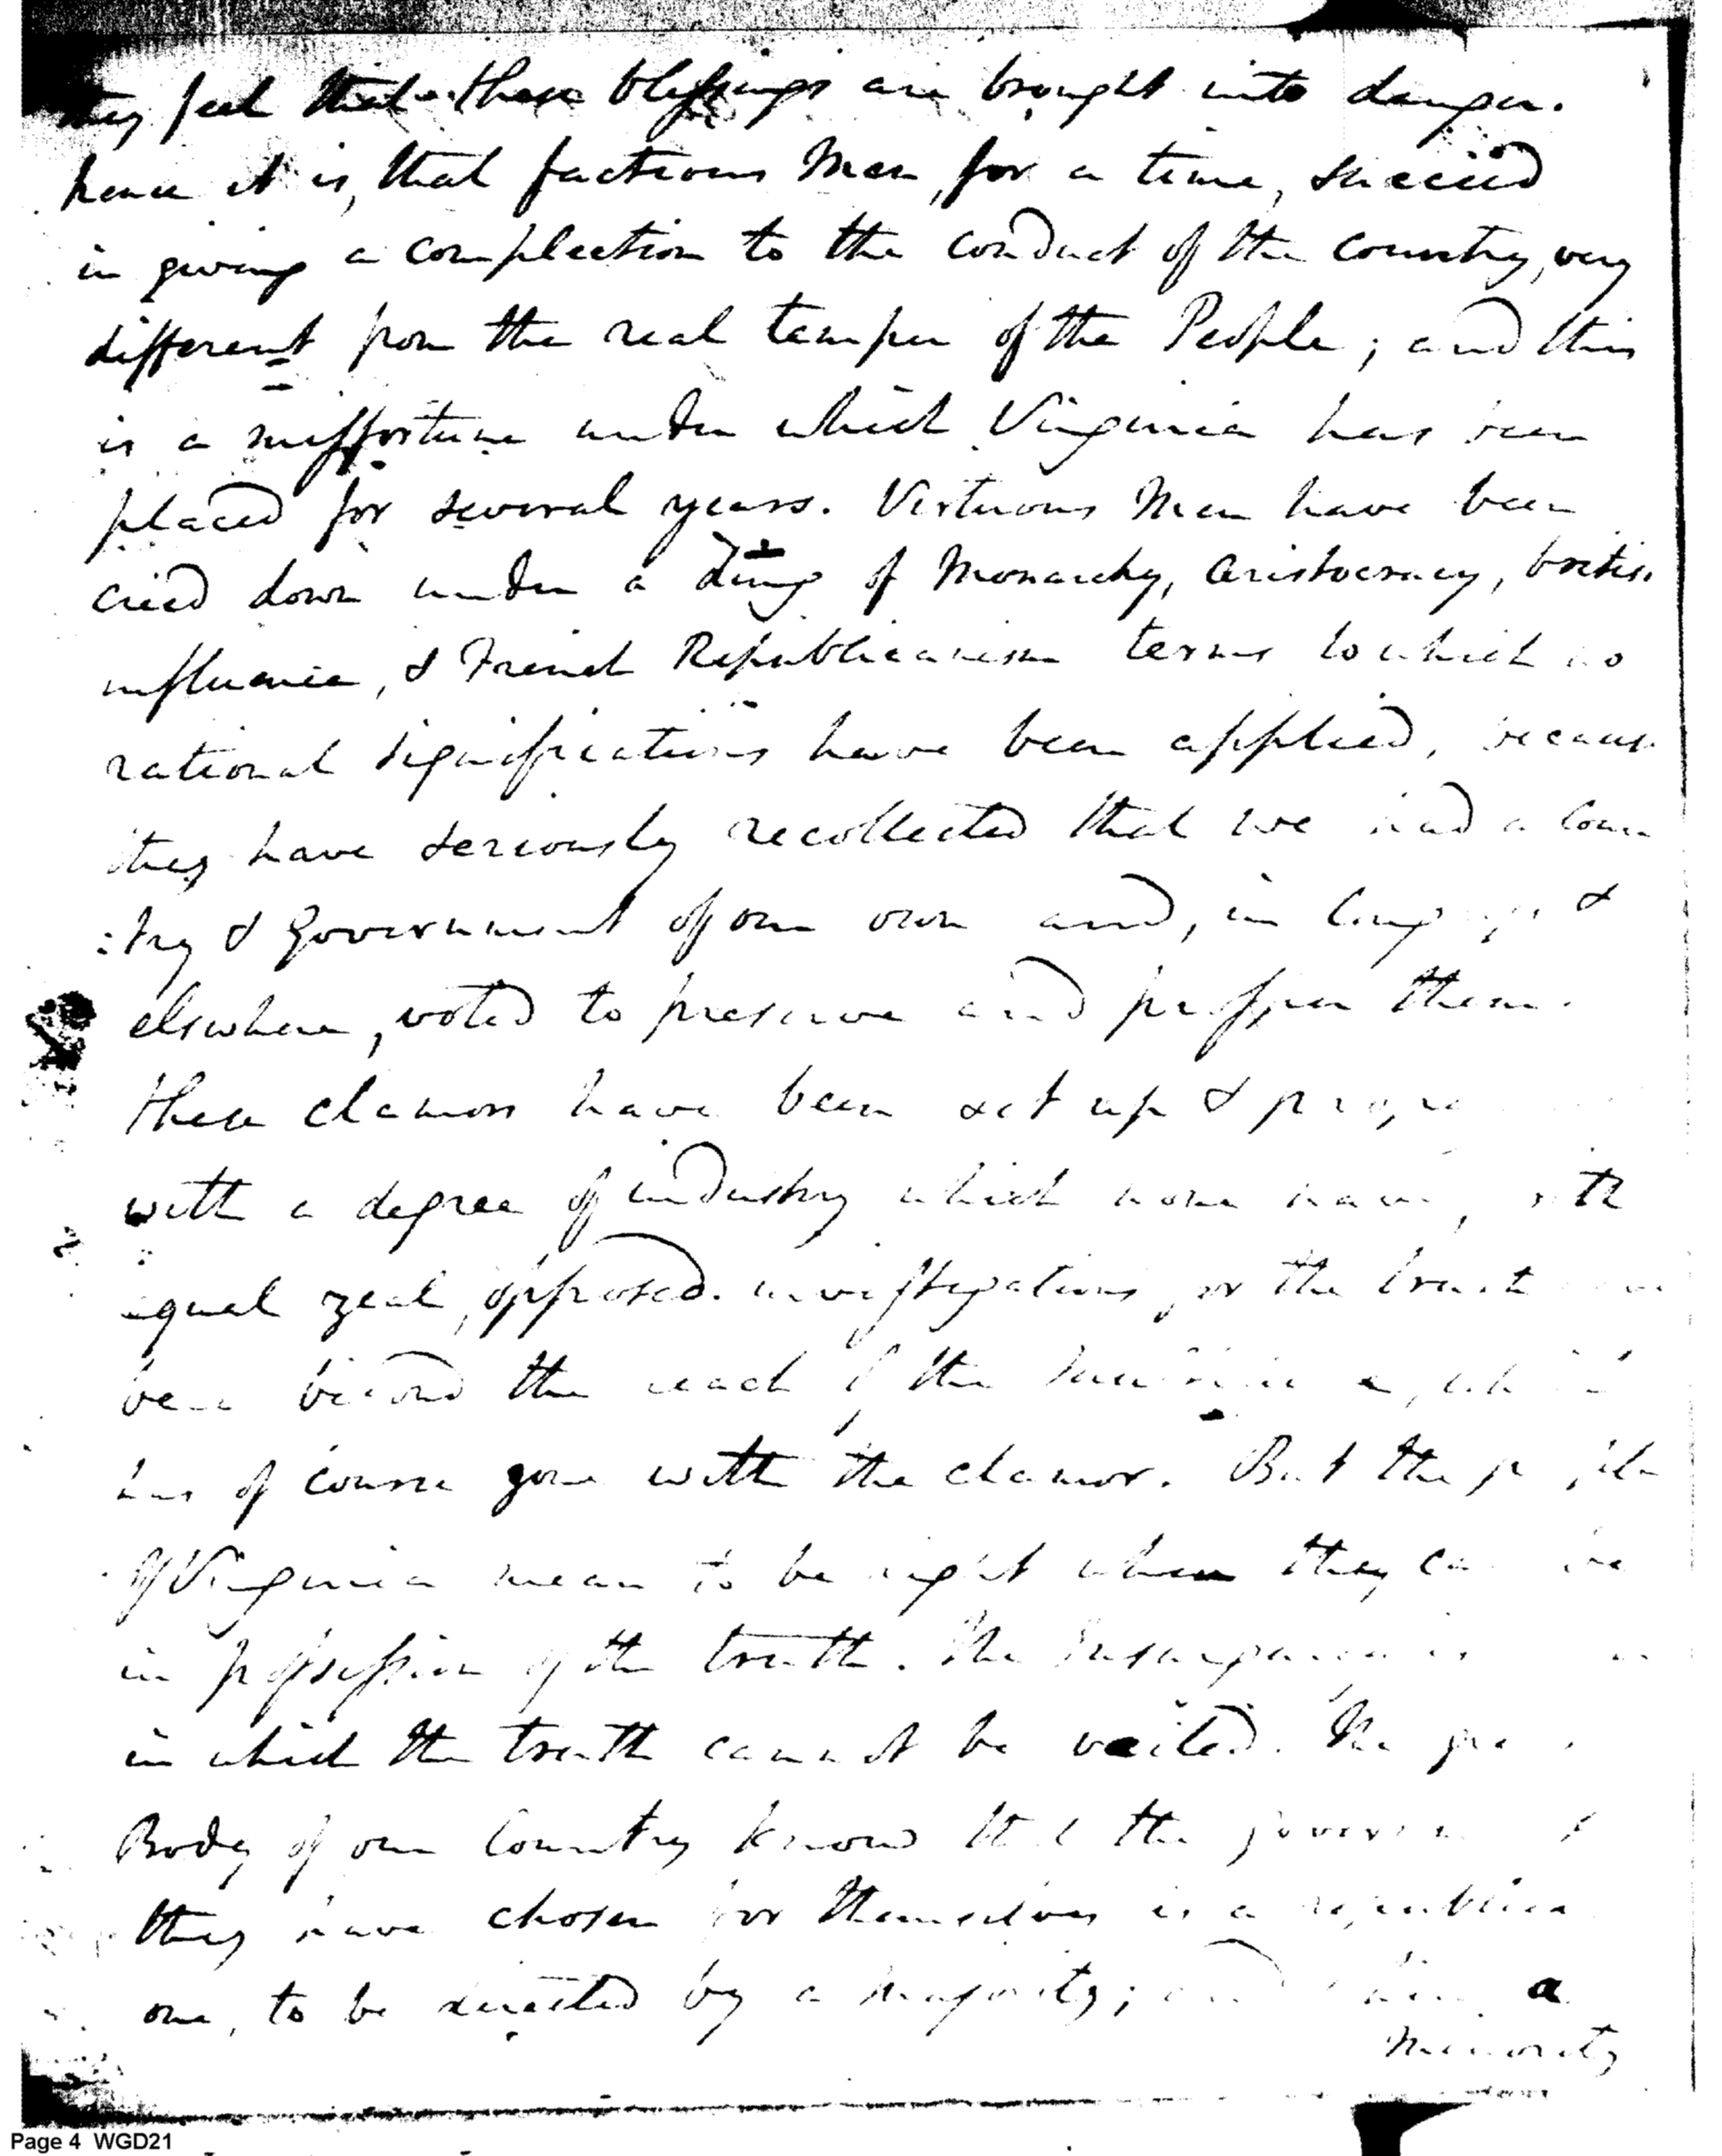 they feel that these blessings are brought into danger.
hence it is, that factious Men, for a time, succeed
in giving a complection to the conduct of the country, very
different from the real temper of the People; and this
is a missfortune under which Virginia has been
placed for several years. Virtuous Men have been
cried down under a of Monarchy, Aristocracy, british
influence, & French Republicanism terms to which no
rational significations have been applied, because
they have seriously recollected that we had a Coun
:try & Government of our own and, in &
elswhere, voted to preserve and prosper them.
these clamors have been set up &
with a degree of industry which none have, with
equal zeal, opposed. investigations, or the truth
been beiond the reach of the
has of course gone with the clamor. But the people
of Virginia mean to be right when they can be
in possession of the truth. The Insurgency is
in which the truth cannot be veiled. The
Body of our Country know that the
they have chosen for themselves is a republican
one, to be directed by a Majority; and a
Minority
Page 4 WGD21